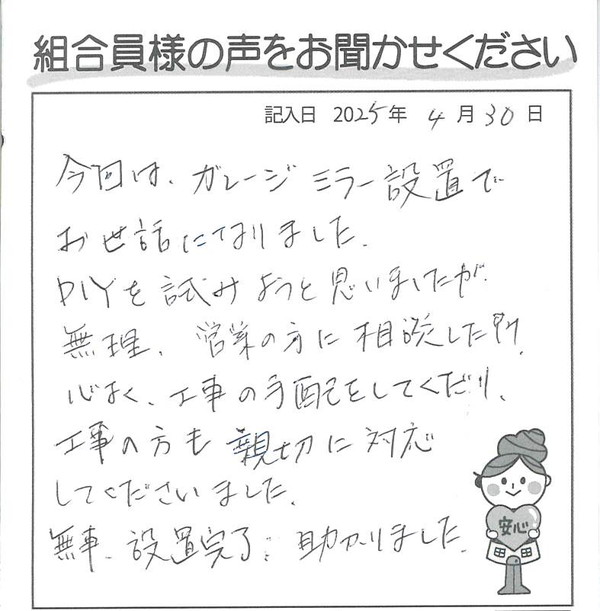 組合員様の声をお聞かせください
記入日 2025年 4月30日
今回は、ガレージミラー設置で
お世話になりました。
DIYを試みようと思いましたが
無理、営業の方に相談した所、
心よく、工事の手配をしてくださり、
工事の方も親切に対応
してくださいました。
無事、設置完了、助かりました。
安心